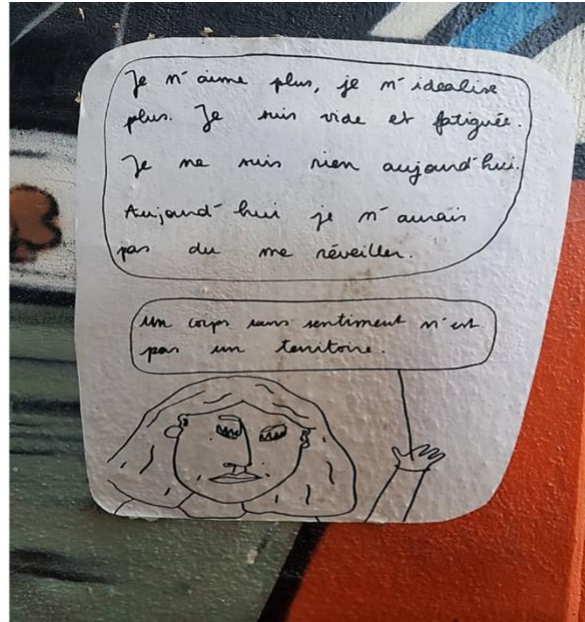 Je n'aime plus, je n'idealise
plus. Je suis vide et fatiguée.
Je ne suis rien aujourd'hui.
Aujourd'hui je n'aurais
pas du me réveiller.
un corps sans sentiment n'est
pas un territoire.